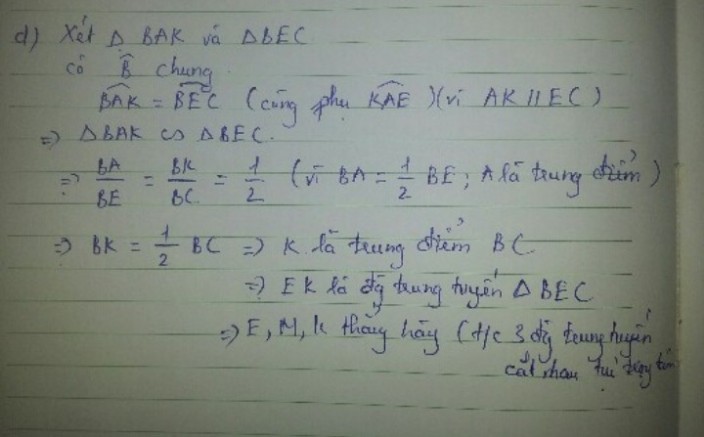 d) Xét Δ BAK và ΔBEC
có B̂ chung
BAK = BEC (cùng phụ KAE) (vì AK // EC)
=> ΔBAK ∽ ΔBEC.
=> BA/BE = BK/BC = 1/2 (vì BA = 1/2 BE; A là trung điểm)
=> BK = 1/2 BC => K là trung điểm BC
=> EK là đg trung tuyến Δ BEC
=> E, M, K thẳng hàng (t/c 3 đg trung tuyến
cắt nhau tại trọng tâm